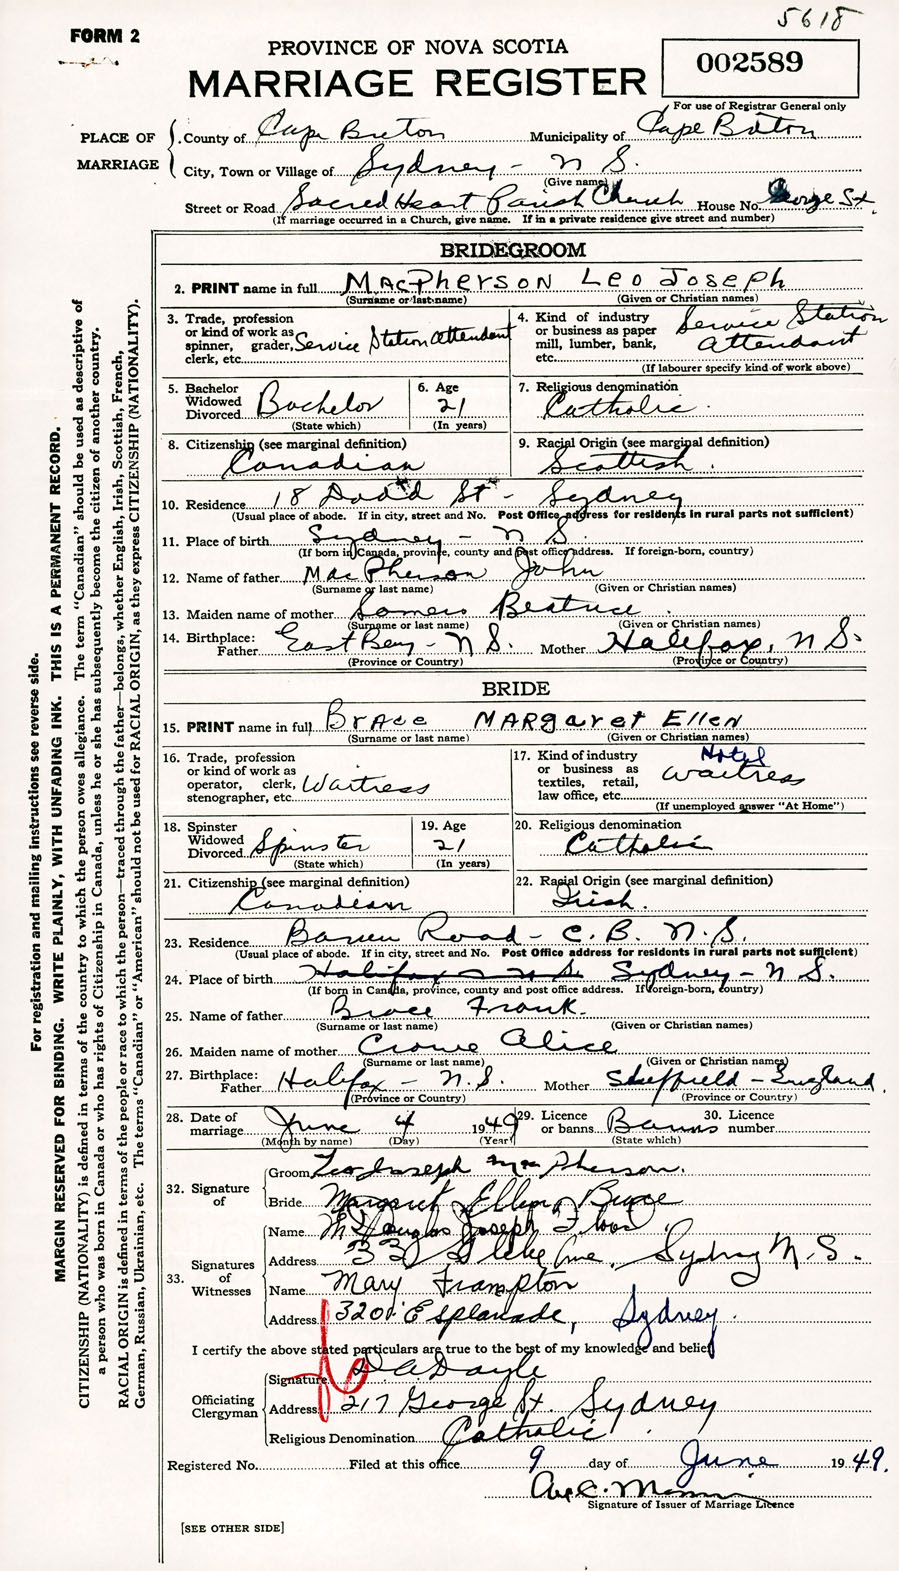 5618
FORM 2
PROVINCE OF NOVA SCOTIA
MARRIAGE REGISTER
002589
For use of Registrar General only
PLACE OF MARRIAGE
County of Cape Breton Municipality of Cape Breton
City, Town or Village of Sydney - N S.
(Give name)
Street or Road Sacred Heart Parish Church House No. George St.
(If marriage occurred in a Church, give name. If in a private residence give street and number)
BRIDEGROOM
2. PRINT name in full MacPherson Leo Joseph
(Surname or last name) (Given or Christian names)
3. Trade, profession or kind of work as spinner, grader, clerk, etc. Service Station attendant
4. Kind of industry or business as paper mill, lumber, bank, etc. Service Station attendant
(If labourer specify kind of work above)
5. Bachelor Widowed Divorced Bachelor
(State which)
6. Age 21
(In years)
7. Religious denomination Catholic.
8. Citizenship (see marginal definition) Canadian
9. Racial Origin (see marginal definition) Scottish.
10. Residence 18 Dodd St - Sydney
(Usual place of abode. If in city, street and No. Post Office address for residents in rural parts not sufficient)
11. Place of birth Sydney - N S.
(If born in Canada, province, county and post office address. If foreign-born, country)
12. Name of father MacPherson John
(Surname or last name) (Given or Christian names)
13. Maiden name of mother Somers Beatrice.
(Surname or last name) (Given or Christian names)
14. Birthplace: Father East Bay - N S. Mother Halifax, N S.
(Province or Country) (Province or Country)
BRIDE
15. PRINT name in full Brace Margaret Ellen
(Surname or last name) (Given or Christian names)
16. Trade, profession or kind of work as operator, clerk, stenographer, etc. Waitress
17. Kind of industry or business as textiles, retail, law office, etc. Hotel Waitress
(If unemployed answer "At Home")
18. Spinster Widowed Divorced Spinster
(State which)
19. Age 21
(In years)
20. Religious denomination Catholic
21. Citizenship (see marginal definition) Canadian
22. Racial Origin (see marginal definition) Irish.
23. Residence Road - C. B. N. S.
(Usual place of abode. If in city, street and No. Post Office address for residents in rural parts not sufficient)
24. Place of birth Halifax - N S. Sydney - N S.
(If born in Canada, province, county and post office address. If foreign-born, country)
25. Name of father Brace Frank.
(Surname or last name) (Given or Christian names)
26. Maiden name of mother Crowe Alice
(Surname or last name) (Given or Christian names)
27. Birthplace: Father Halifax - N. S. Mother Sheffield - England.
(Province or Country) (Province or Country)
28. Date of marriage June 4 1949
(Month by name) (Day) (Year)
29. Licence or banns Banns
(State which)
30. Licence number
32. Signature of
Groom Leo Joseph MacPherson.
Bride Margaret Ellen Brace
33. Signatures of Witnesses
Name Douglas Joseph
Address 33 Ave, Sydney N. S.
Name Mary Frampton
Address 320 Esplanade, Sydney.
I certify the above stated particulars are true to the best of my knowledge and belief
Officiating Clergyman
Signature D A Doyle
Address 217 George St. Sydney
Religious Denomination Catholic.
Registered No. Filed at this office 9 day of June 1949.
Signature of Issuer of Marriage Licence
[SEE OTHER SIDE]
For registration and mailing instructions see reverse side.
MARGIN RESERVED FOR BINDING. WRITE PLAINLY, WITH UNFADING INK. THIS IS A PERMANENT RECORD.
CITIZENSHIP (NATIONALITY) is defined in terms of the country to which the person owes allegiance. The term "Canadian" should be used as descriptive of
a person who was born in Canada or who has rights of Citizenship in Canada, unless he or she has subsequently become the citizen of another country.
RACIAL ORIGIN is defined in terms of the people or race to which the person—traced through the father—belongs, whether English, Irish, Scottish, French,
German, Russian, Ukrainian, etc. The terms "Canadian" or "American" should not be used for RACIAL ORIGIN, as they express CITIZENSHIP (NATIONALITY).